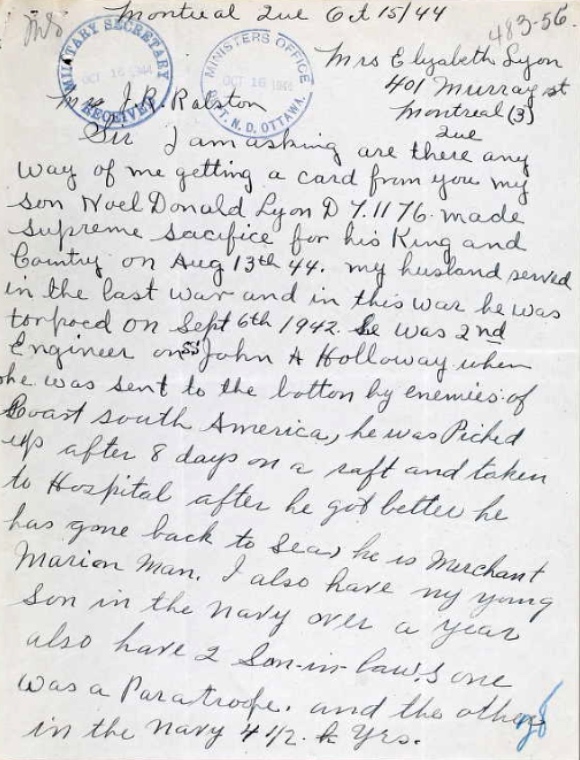 Montreal Que Oct 15/44
483-56.
MILITARY SECRETARY
OCT 16 1944
RECEIVED
MINISTERS OFFICE
OCT 16
DEPT. N. D. OTTAWA.
Mrs Elizabeth Lyon
401 Murray st
Montreal (3)
Que
J.R. Ralston
Sir I am asking are there any
way of me getting a card from you my
son Noel Donald Lyon D 71176. made
supreme sacifice for his King and
Country on Aug 13th 44. my husband served
in the last war and in this war he was
torpoed on Sept 6th 1942. he was 2nd
Engineer on SS John A Holloway when
he was sent to the botton by enemies of
Coast south America, he was Picked
up after 8 days on a raft and taken
to Hospital after he got better he
has gone back to sea, he is Merchant
Marion Man. I also have my young
son in the navy over a year
also have 2 Son-in-law.s one
was a Paratroope. and the other
in the navy 4 1/2. Yrs.